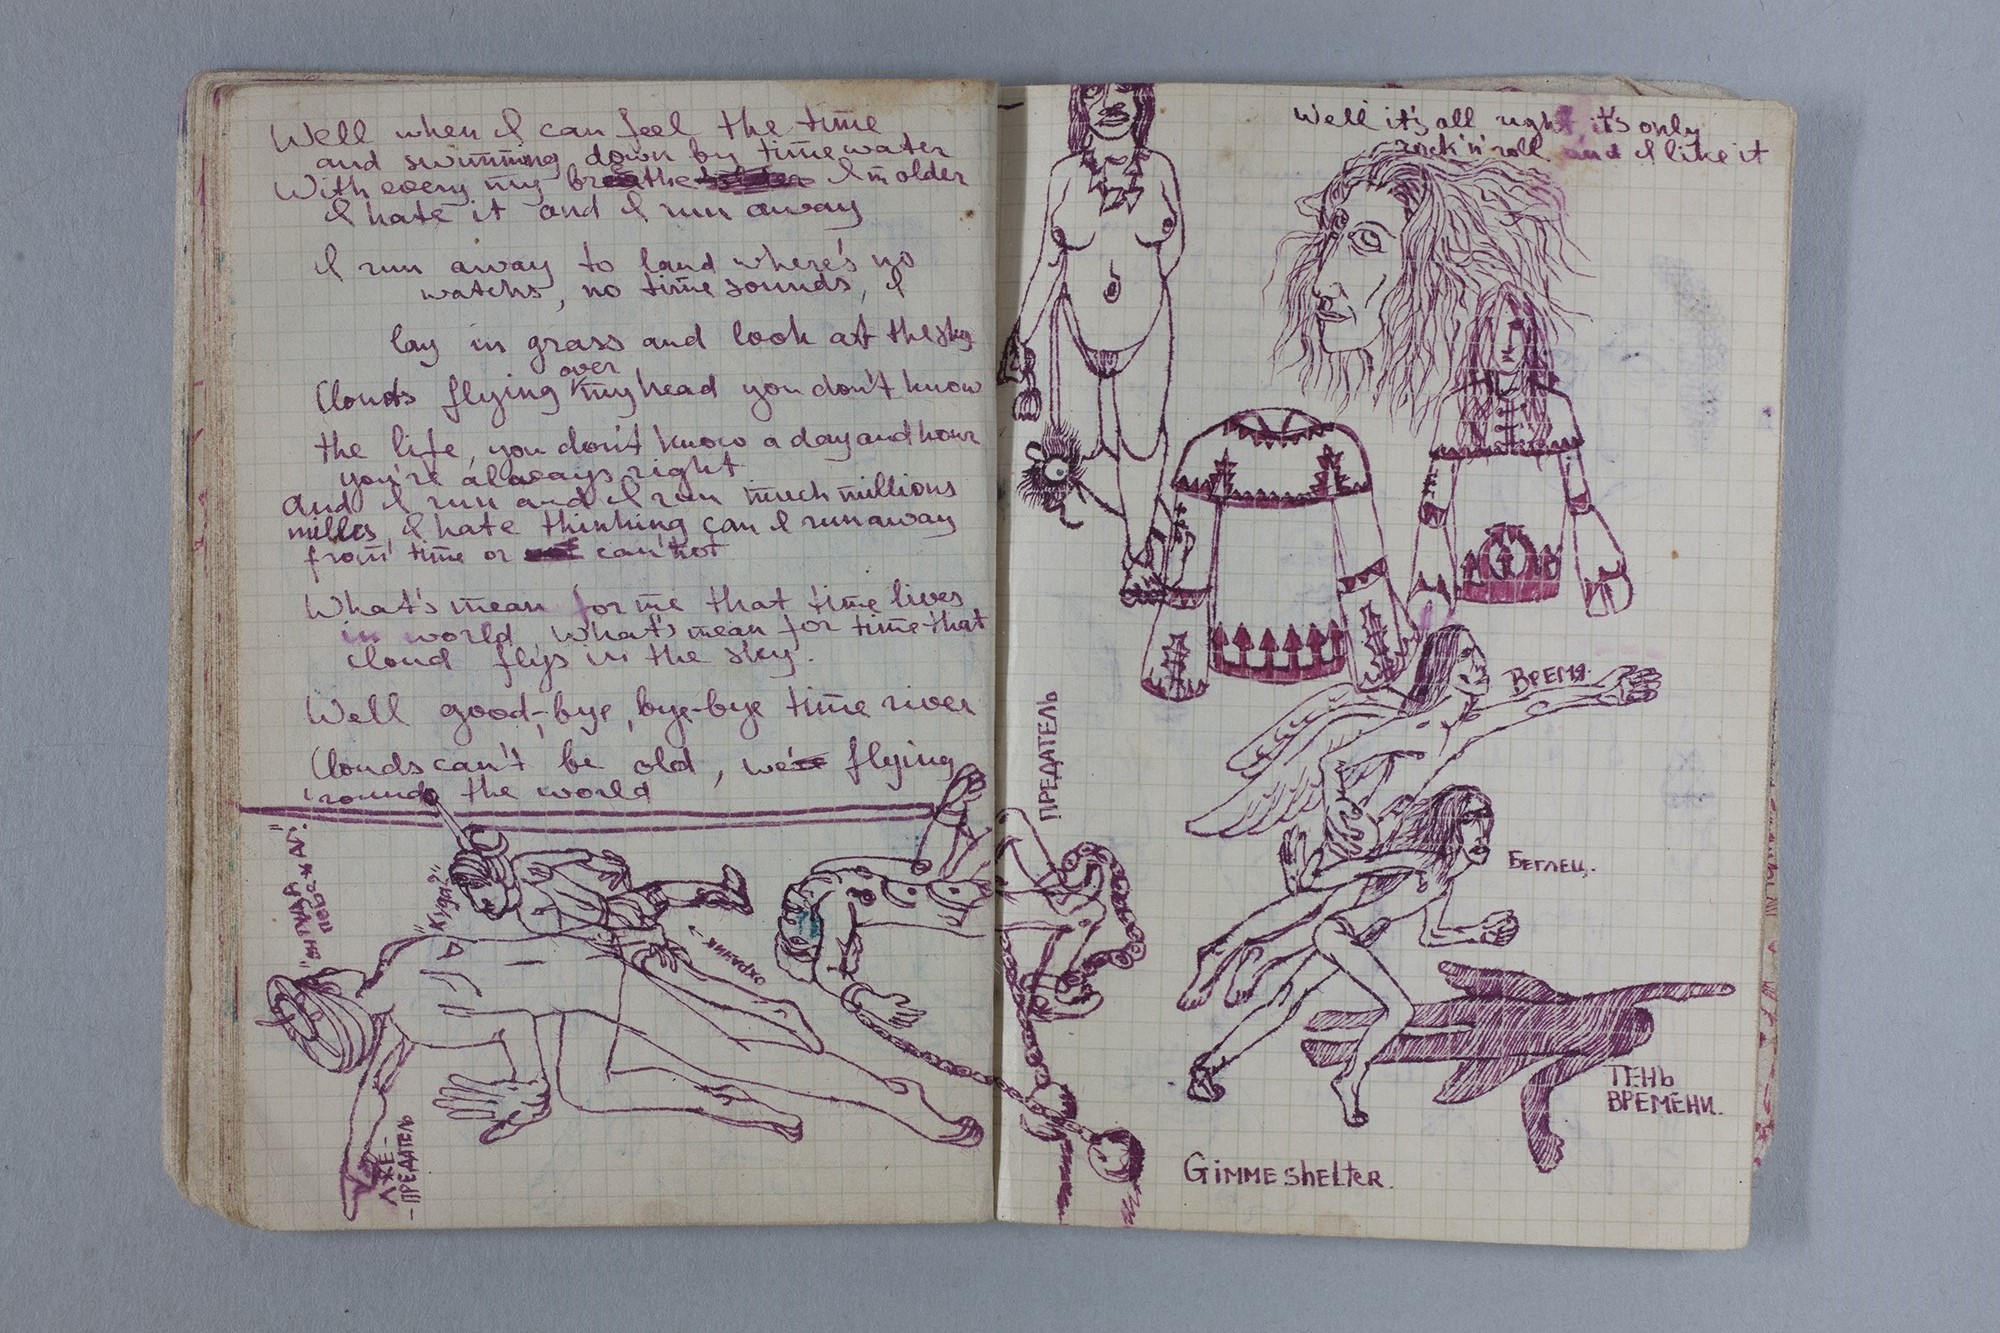 Well when I can feel the time
and swimming down by time water
With every my breathe I'm older
I hate it and I run away
I run away to land where's no
watchs, no time sounds, I
lay in grass and look at the sky
Clouds flying over my head you don't know
the life, you don't know a day and hour
you're always right
and I run and I run much millions
milles, I hate thinking can I run away
from time or can not
What's mean for me that time lives
in world, What's mean for time that
cloud flys in the sky.
Well good-bye, bye-bye time river
Clouds can't be old, we flying
round the world
"КУДЫ?"
ОХРАННИК
ЛЖЕ-
-ПРЕДАТЕЛЬ
Well it's all right, it's only
rock'n'roll and I like it
ПРЕДАТЕЛЬ
ВРЕМЯ.
БЕГЛЕЦ.
ТЕНЬ
ВРЕМЕНИ.
GIMME SHELTER.